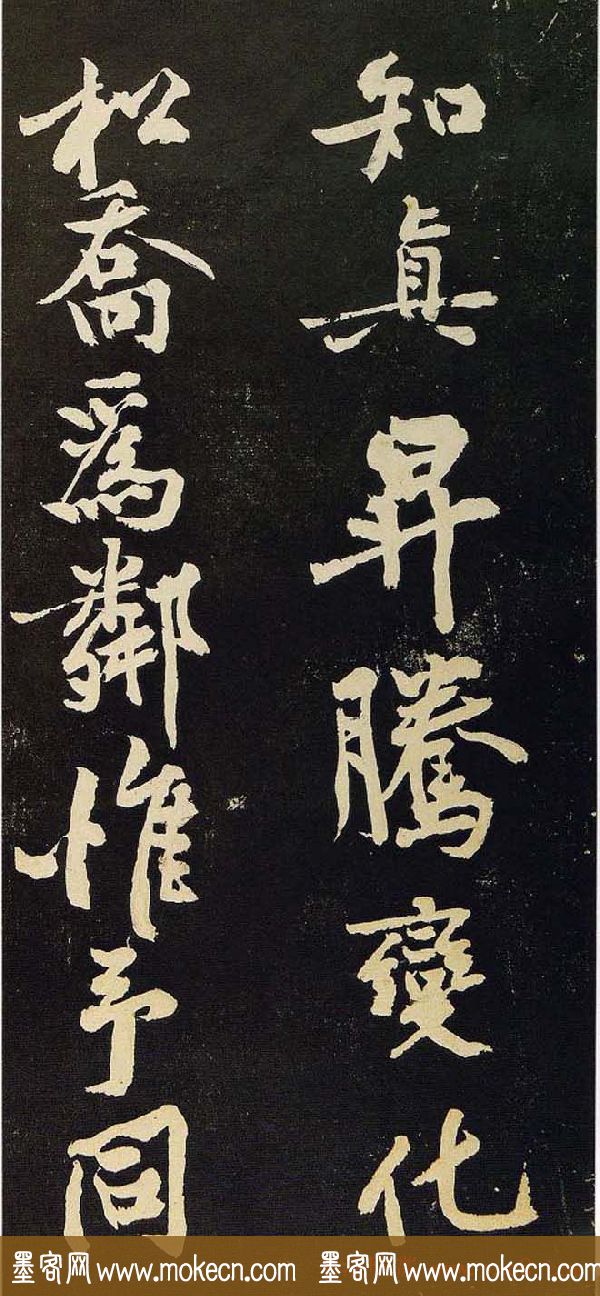 知真昇騰變化
松喬爲鄰惟予同
墨客网 www.mokecn.com 墨客网 www.mokecn.com